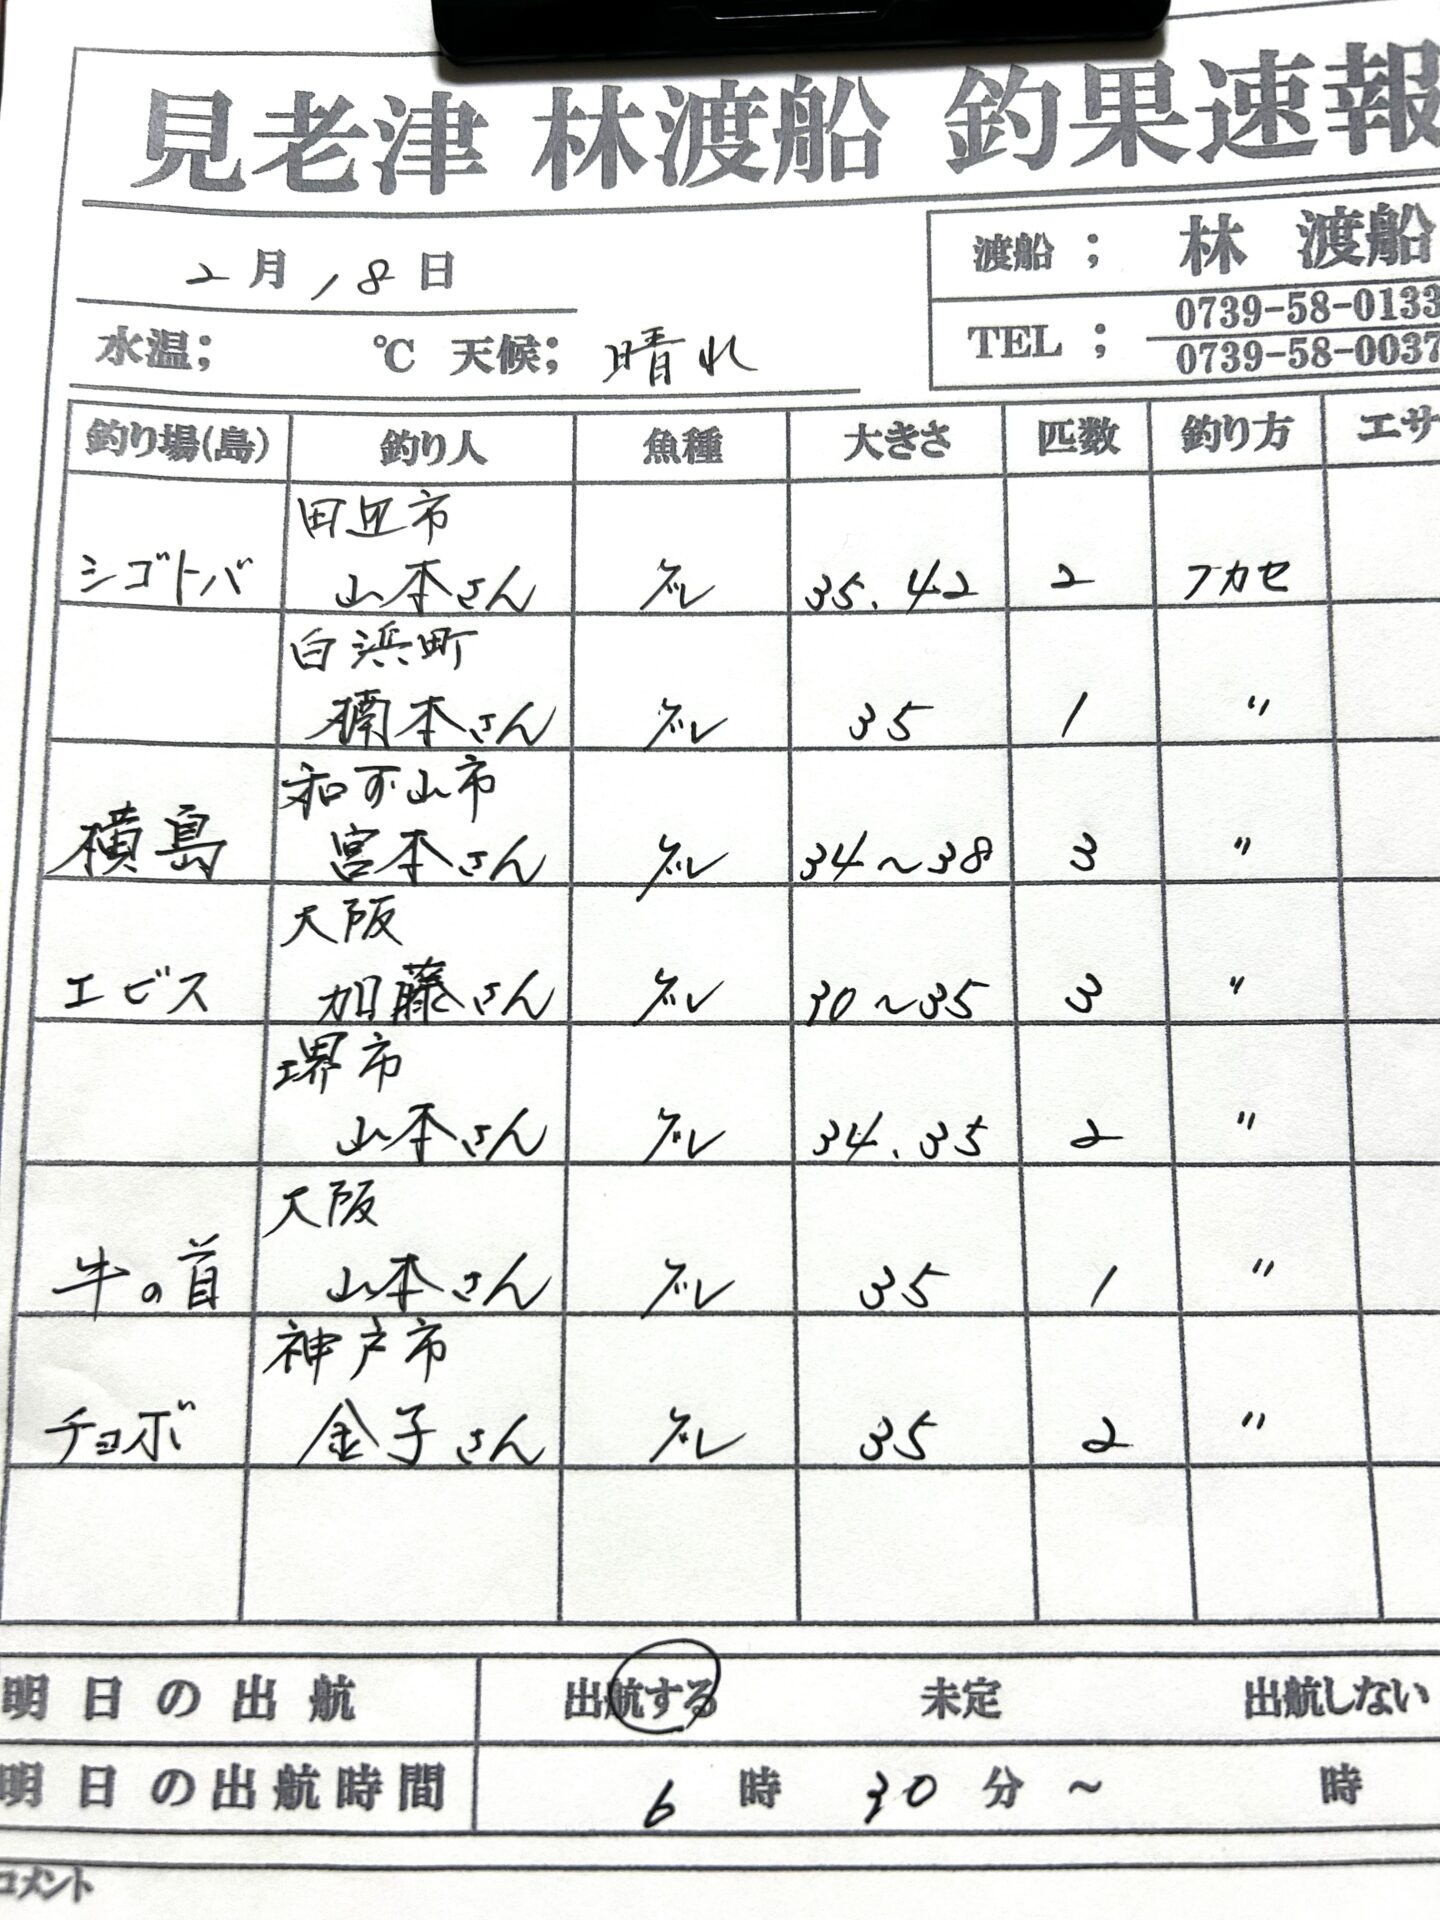 見老津 林渡船 釣果速報
2月18日
渡船； 林 渡船
TEL； 0739-58-0133
0739-58-0037
水温； ℃ 天候；晴れ
釣り場(島) 釣り人 魚種 大きさ 匹数 釣り方 エサ
田辺市
シゴトバ 山本さん グレ 35.42 2 フカセ
白浜町
楠本さん グレ 35 1 〃
和可山市
横島 宮本さん グレ 34〜38 3 〃
大阪
エビス 加藤さん グレ 30〜35 3 〃
堺市
山本さん グレ 34.35 2 〃
大阪
牛の首 山本さん グレ 35 1 〃
神戸市
チョボ 金子さん グレ 35 2 〃
明日の出航 出航する 未定 出航しない
明日の出航時間 6時30分〜 時
コメント